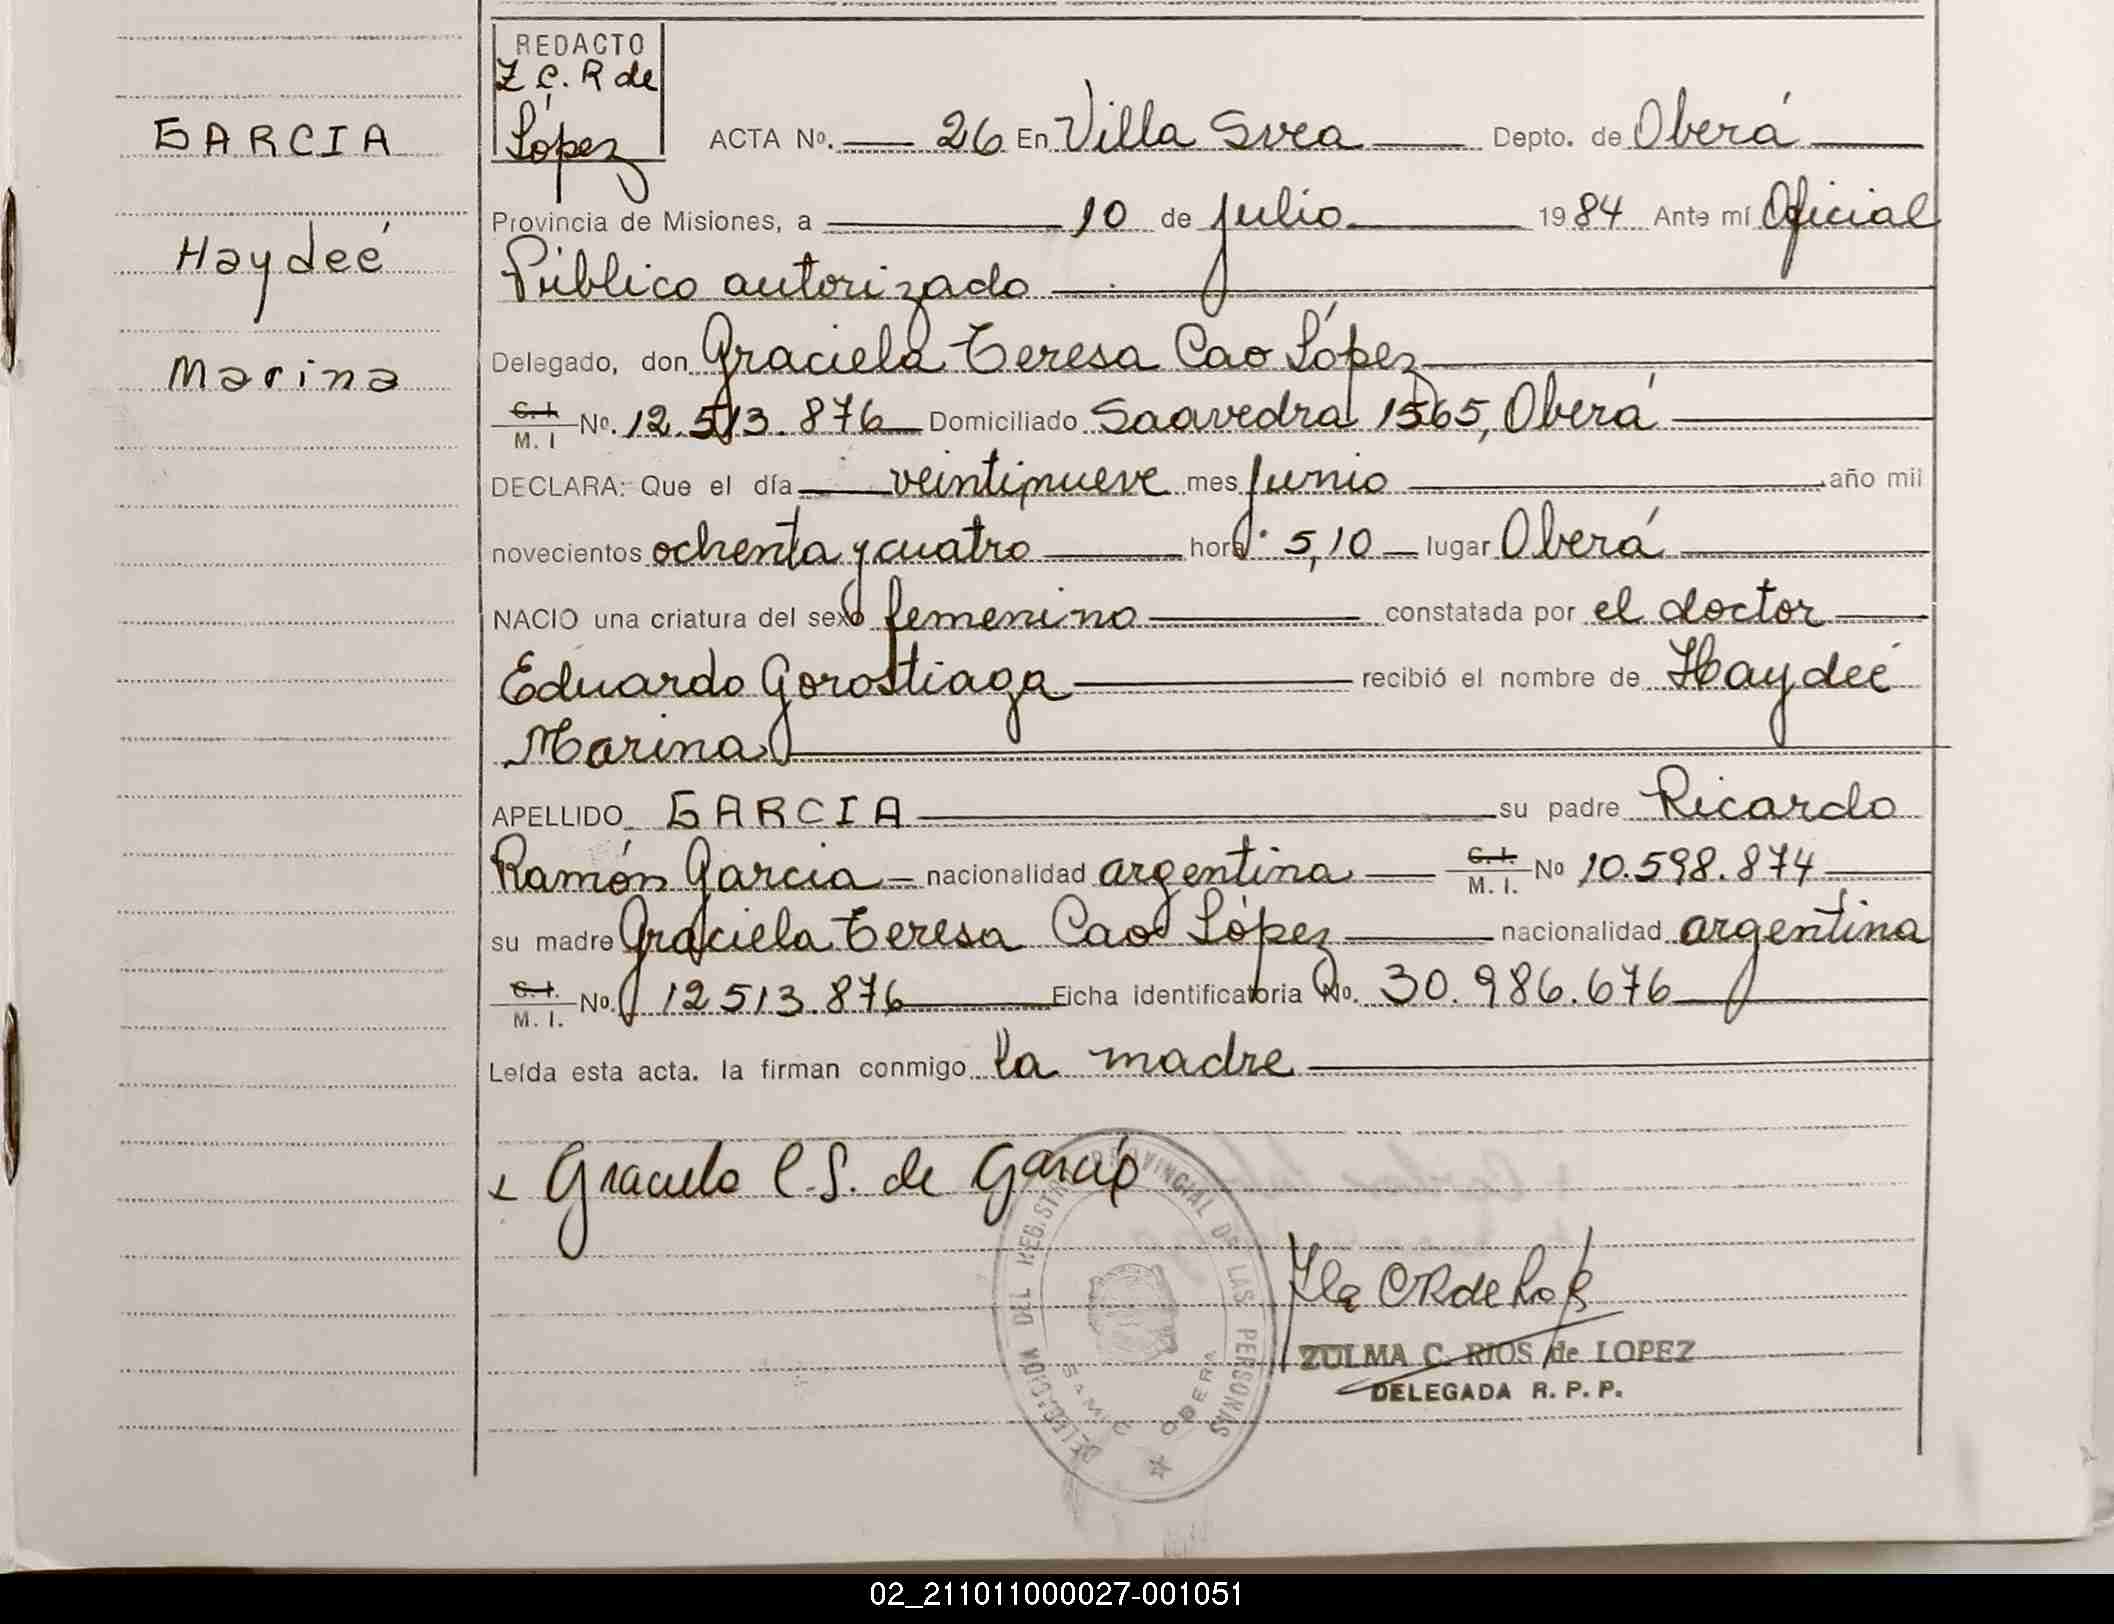 GARCIA
Haydeé
Marina
REDACTO
Z C. R de
López
ACTA Nº. 26 En Villa Svea Depto. de Oberá
Provincia de Misiones, a 10 de julio 1984 Ante mí Oficial
Público autorizado
Delegado, don Graciela Teresa Cao López
C. I. M. I Nº. 12.513.876 Domiciliado Saavedra 1565, Oberá
DECLARA: Que el día veintinueve mes junio año mil
novecientos ochenta y cuatro hora 5,10 lugar Oberá
NACIO una criatura del sexo femenino constatada por el doctor
Eduardo Gorostiaga recibió el nombre de Haydeé
Marina
APELLIDO GARCIA su padre Ricardo
Ramón Garcia nacionalidad argentina C. I. M. I. Nº 10.598.874
su madre Graciela Teresa Cao López nacionalidad argentina
C. I. M. I. Nº. 12513.876 Ficha identificatoria No. 30.986.676
Leída esta acta. la firman conmigo la madre
x Graciela C.L. de García
DELEGACION DEL REGISTRO PROVINCIAL DE LAS PERSONAS
SAMIC OBERA
ZULMA C. RIOS de LOPEZ
DELEGADA R. P. P.
02_211011000027-001051